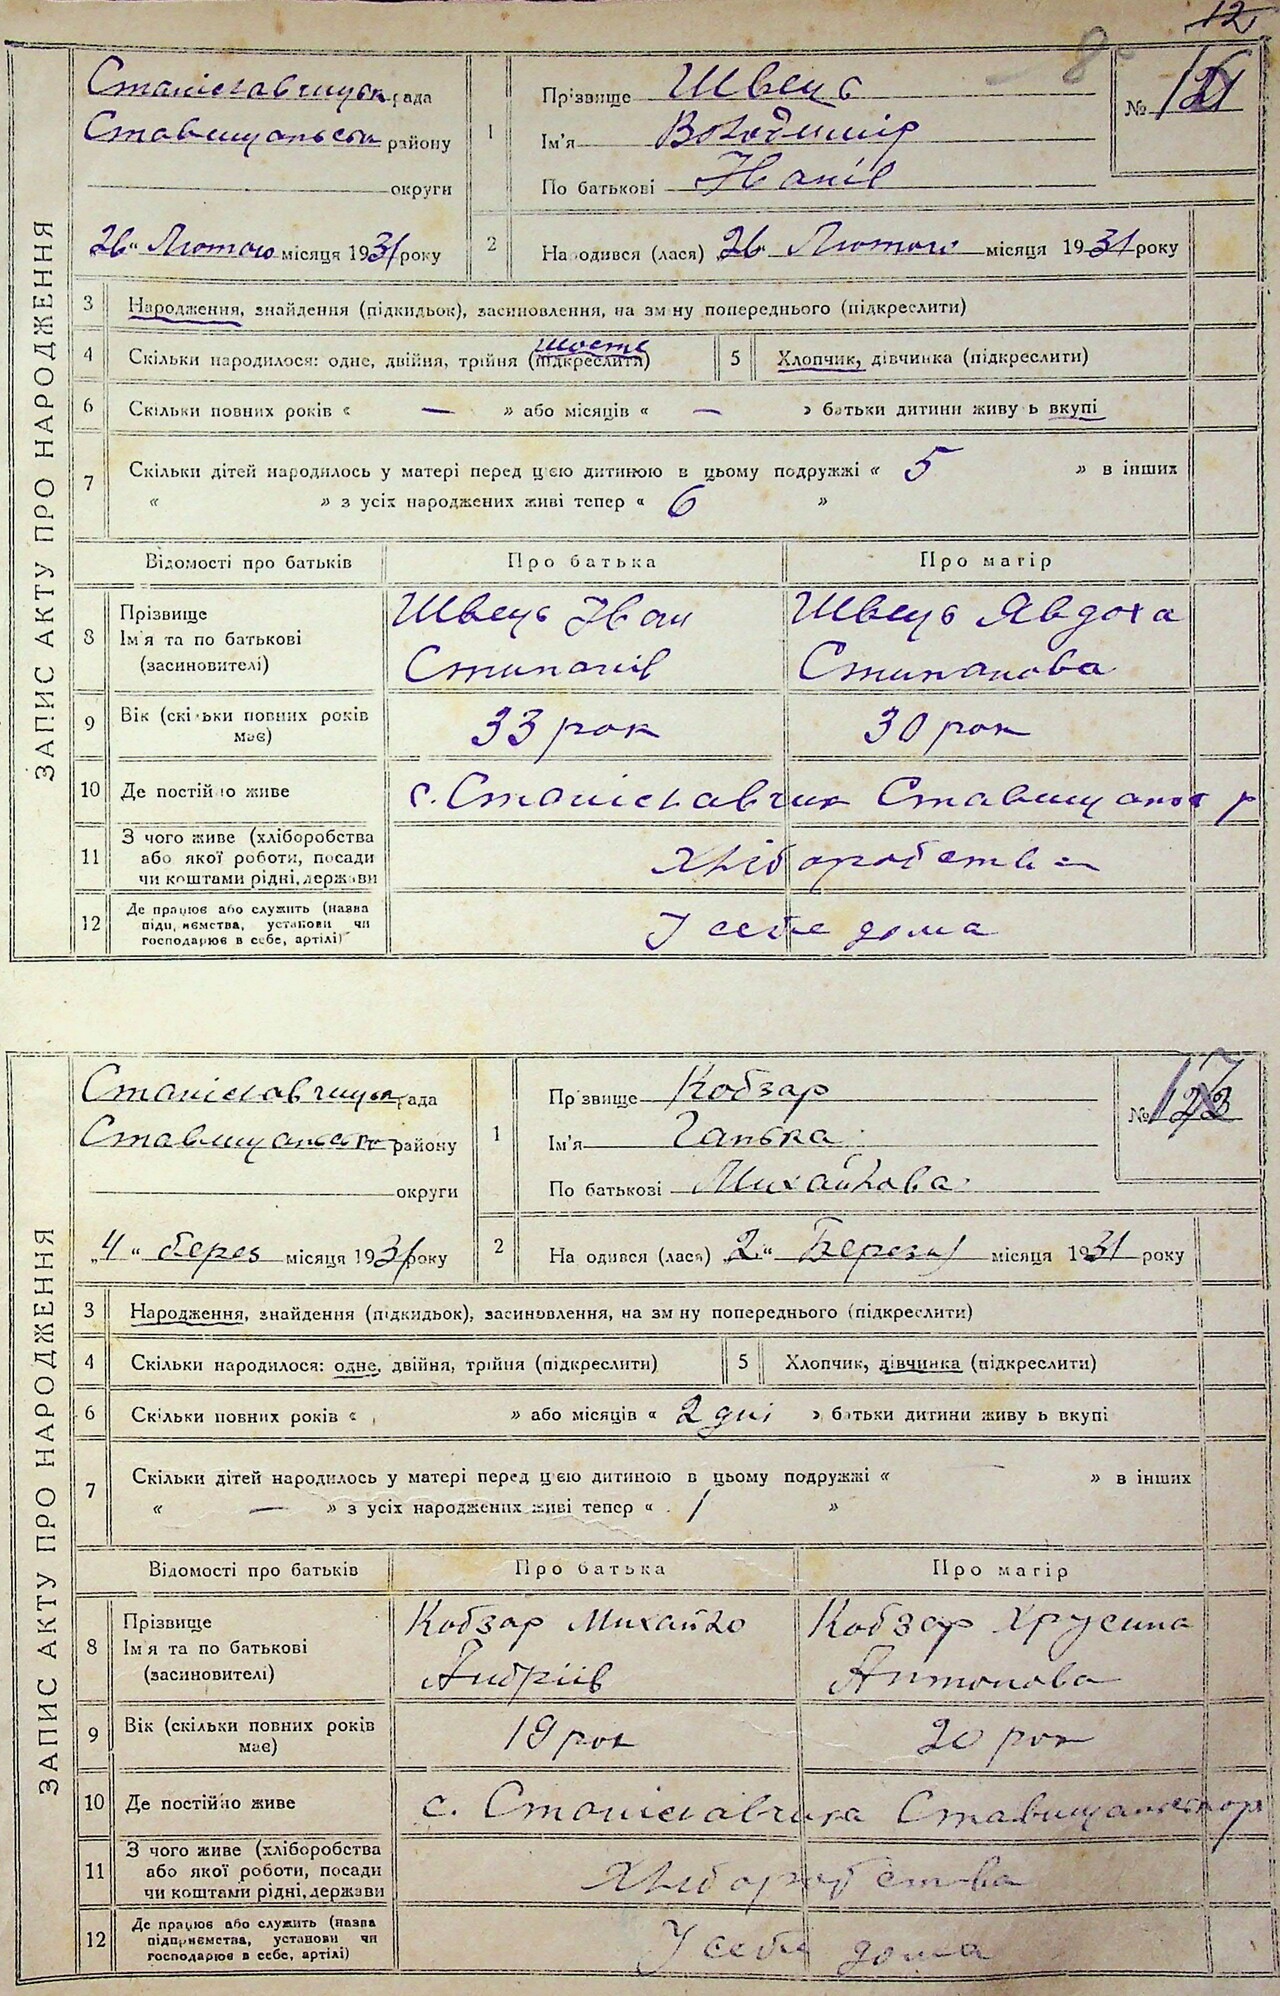 12
8
ЗАПИС АКТУ ПРО НАРОДЖЕННЯ
Станіславчицьк. рада
Ставищанськ району
округи
26 " Лютого місяця 1931 року
1
Прізвище Швець
Ім'я Володимир
По батькові Іванів
№
2
Народився (лася) 26 " Лютого місяця 1931 року
3 Народження, знайдення (підкидьок), засиновлення, на зміну попереднього (підкреслити)
4 Скільки народилося: одне, двійня, трійня (підкреслити) шосте
5 Хлопчик, дівчинка (підкреслити)
6 Скільки повних років « — » або місяців « — » батьки дитини живуть вкупі
7 Скільки дітей народилось у матері перед цією дитиною в цьому подружжі « 5 » в інших
« » з усіх народжених живі тепер « 6 »
Відомості про батьків Про батька Про матір
8 Прізвище
Ім'я та по батькові
(засиновителі)
Швець Іван
Стипанів
Швець Явдоха
Стипанова
9 Вік (скільки повних років
має)
33 рок 30 рок
10 Де постійно живе с. Станіславчик Ставищанськ р
11 З чого живе (хліборобства
або якої роботи, посади
чи коштами рідні, держави
Хліборобства
12 Де працює або служить (назва
підприємства, установи чи
господарює в себе, артілі)
У себе дома
ЗАПИС АКТУ ПРО НАРОДЖЕННЯ
Станіславчицьк. рада
Ставищанського району
округи
„4" берез місяця 1931 року
1
Прізвище Кобзар
Ім'я Ганька
По батькові Михайлова
№ 17
2
Народився (лася) 2 " Березня місяця 1931 року
3 Народження, знайдення (підкидьок), засиновлення, на зміну попереднього (підкреслити)
4 Скільки народилося: одне, двійня, трійня (підкреслити)
5 Хлопчик, дівчинка (підкреслити)
6 Скільки повних років « » або місяців « 2 дні » батьки дитини живуть вкупі
7 Скільки дітей народилось у матері перед цією дитиною в цьому подружжі « — » в інших
« — » з усіх народжених живі тепер « 1 »
Відомості про батьків Про батька Про матір
8 Прізвище
Ім'я та по батькові
(засиновителі)
Кобзар Михайло
Андріїв
Кобзар Хрусина
Антонова
9 Вік (скільки повних років
має)
19 рок 20 рок
10 Де постійно живе с. Станіславчика Ставищанськ р
11 З чого живе (хліборобства
або якої роботи, посади
чи коштами рідні, держави
Хліборобства
12 Де працює або служить (назва
підприємства, установи чи
господарює в себе, артілі)
У себе дома